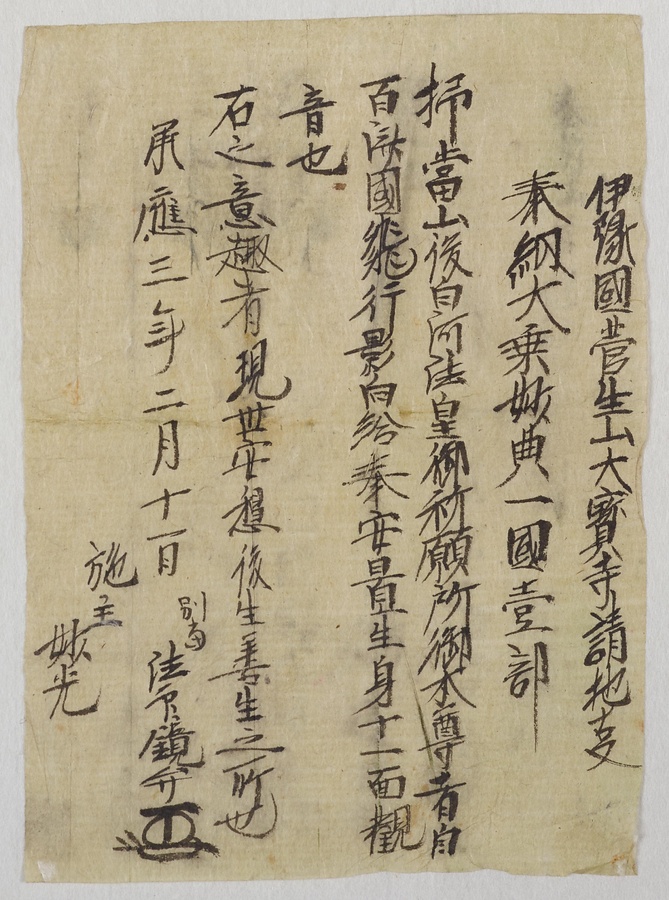 伊豫國菅生山大寳寺請取支
奉納大乗妙典一國壹部
掃當山後白河法皇御祈願所御本尊者自
百済國飛行影向給奉安置生身十一面觀
音也
右之意趣者現世安穏後生善生之所也
承應三年二月十一日
別當
法印鏡弁
施主
妙光